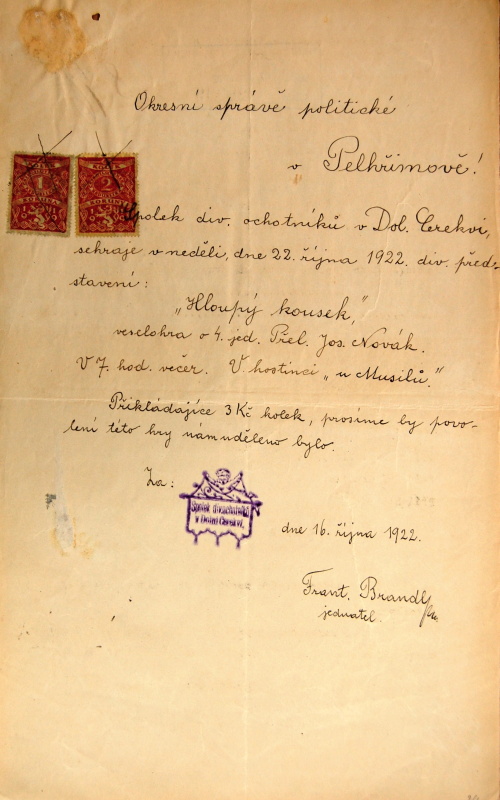 Okresní správě politické
v Pelhřimově!
1
KORUNA
2
KORUNY
Spolek div. ochotníků v Dol. Cerekvi,
sehraje v neděli, dne 22. října 1922. div. před-
stavení:
„Hloupý kousek,"
veselohra o 4. jed. Přel. Jos. Novák.
V 7. hod. večer. V hostinci „u Musilů."
Přikládajíce 3 Kč kolek, prosíme by povo-
lení této hry nám uděleno bylo.
Za:
Spolek divad. ochotníků
v Dolní Cerekvi.
dne 16. října 1922.
Frant. Brandl
jednatel.